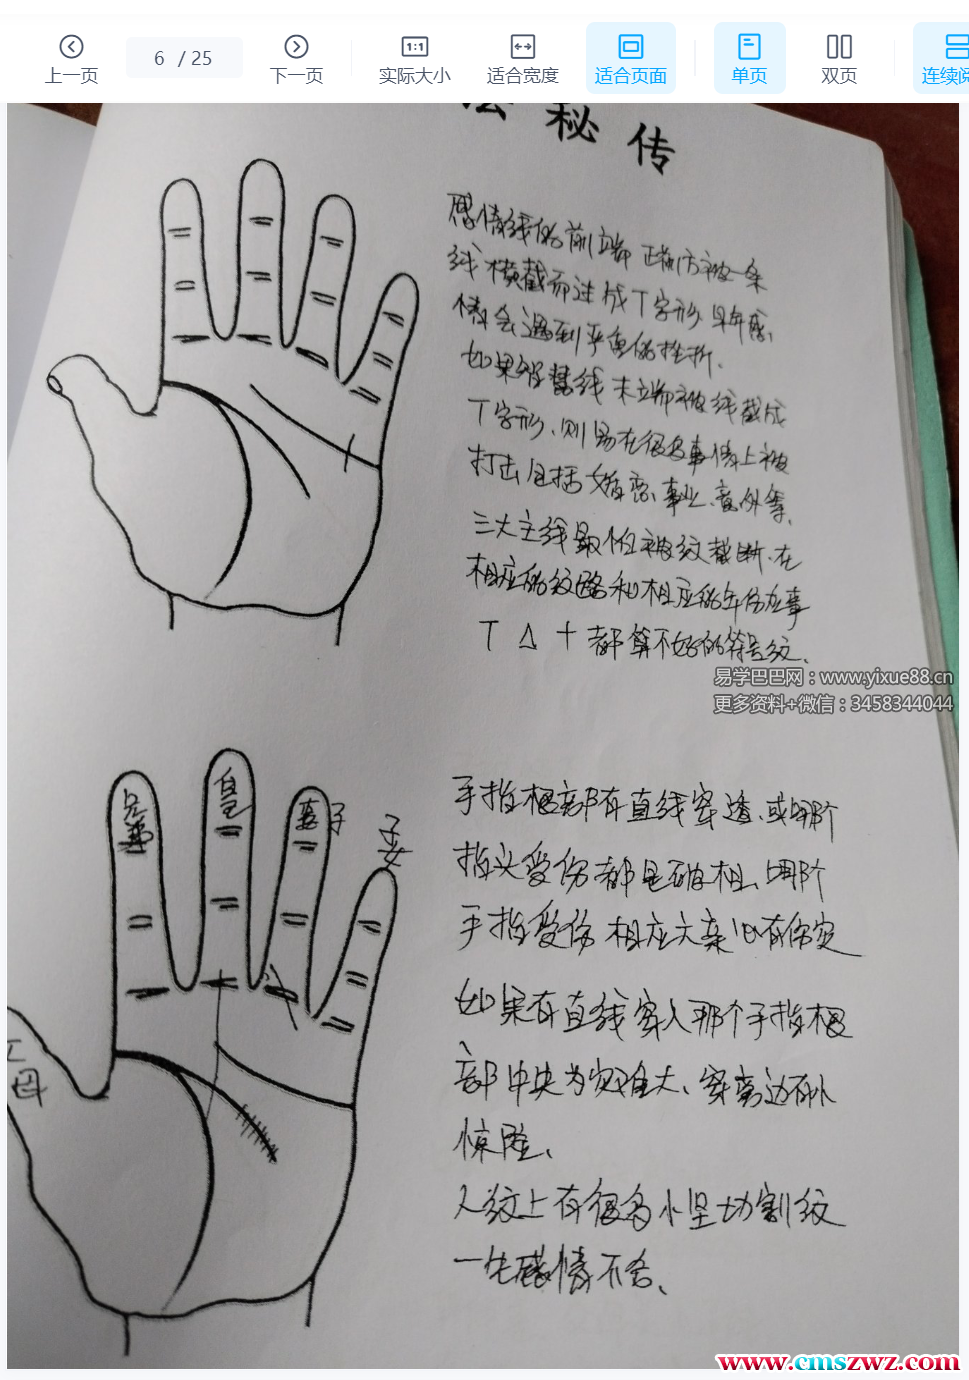 上一页
6 / 25
下一页
1:1
实际大小
适合宽度
适合页面
单页
双页
连续阅
秘传
感情线的前端 正前方被一条
线横截而过成丁字形 早年感
情会遇到严重的挫折.
如果智慧线末端被线截成
丁字形、则易在很多事情上被
打击包括婚恋、事业、意外等、
三大主线最怕被纹截断、在
相应的纹路和相应的年份应事
丁 △ 十 都算不好的符号纹、
易学巴巴网：www.yixue88.cn
更多资料+微信：3458344044
兄弟
自己
妻子
子女
父母
手指根部有直线穿透、或哪个
指头受伤都是破相、哪个
手指受伤 相应六亲必有伤灾
如果有直线穿入那个手指根
部中央为灾难大、穿旁边有小
惊险、
人纹上有很多小竖切割纹
一生感情不舍、
www.cmszwz.com